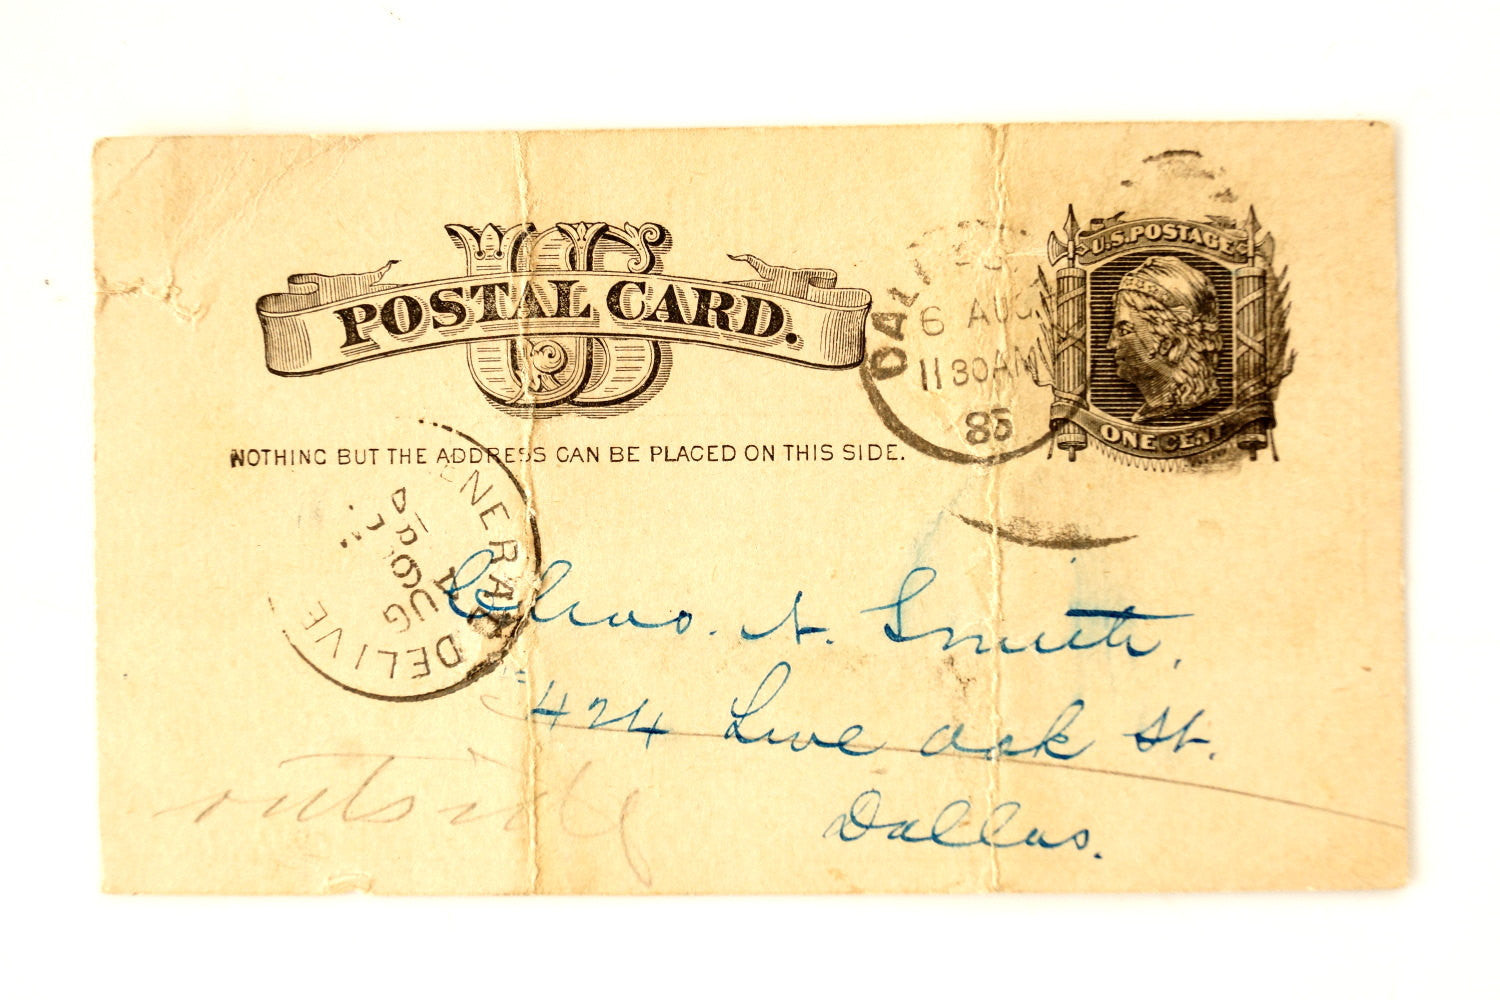 US
POSTAL CARD.
NOTHING BUT THE ADDRESS CAN BE PLACED ON THIS SIDE.
U.S. POSTAGE
ONE CENT
6 AUG.
11 30 AM
85
DELIVE
AUG
6
A. Smith,
424 Live Oak St.
Dallas.
outside